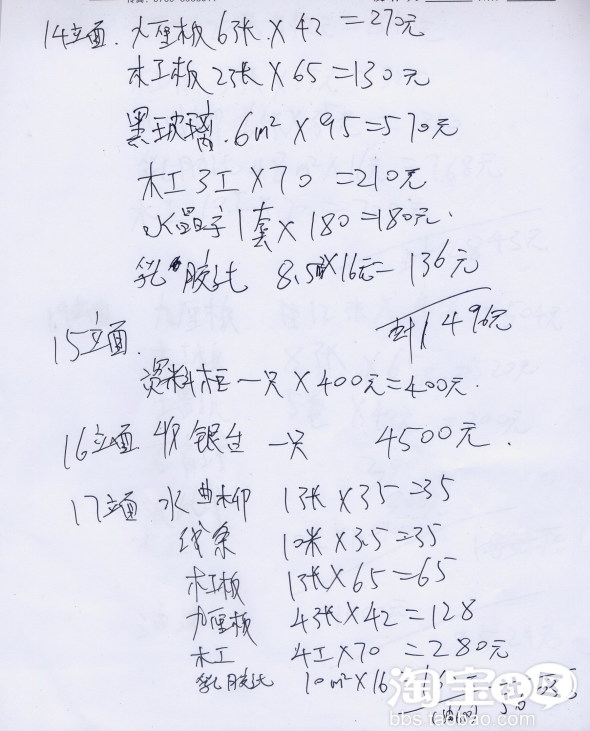 14立面. 九厘板 6张 × 42 =270元
木工板 2张 × 65 =130元
黑玻璃. 6m² × 95 =570元
木工 3工 × 70 =210元
水晶字 1套 × 180 =180元.
乳胶七 8.5m²×16元= 136元
计1496元
15立面.
资料柜一只 × 400元=400元.
16立面 收银台 一只 4500元.
17立面 水曲柳 1张 × 35 =35
线条 10米 × 3.5 =35
木工板 1张 × 65 =65
九厘板 4张 × 42 =128
木工 4工 × 70 =280元
乳胶七 10m² × 16
淘宝
bbs.taobao.com